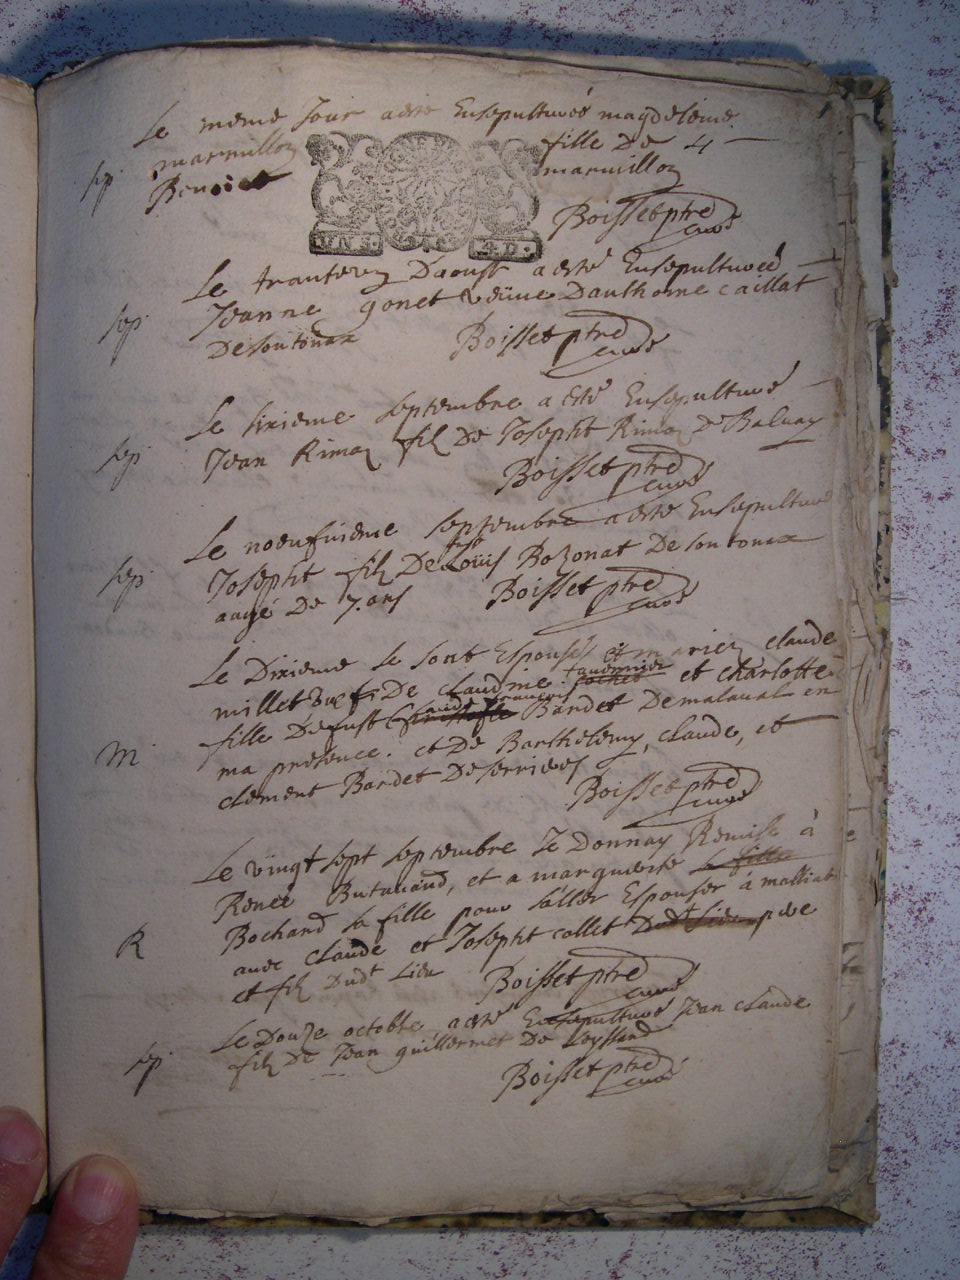 Le meme Jour a esté Ensepulturéé magdeleine
sep. marmillon fille De 4
Benoict marmillon
VN S. 4. D.
Boisset ptre
curé
Le trante D'aoust a esté Ensepulturéé
sep. Jeanne gonet veüue D'anthoine caillat
De soutonax Boisset ptre
curé
Le sixieme septembre a esté Ensepulturé
sep. Jean Rimoz filz De Josepht Rimoz D
Boisset ptre
curé
Le noeufuieme septembre a esté Ensepulturé
sep. Josepht filz De Loüis Bozonat De soutonax
augé De 7. ans Boisset ptre
curé
Le Dixieme se sont Espousés et mariez claude
millet filz De claudine tauernier et charlotte
fille De fust claude francois Bardet De malaual en
M ma présence. et De Barthelemy, claude, et
clement Bardet De serrieres
Boisset ptre
curé
Le vingt sept septembre Je Donnay Remise à
Reneé Butauand, et a marguerite la fille
R Bochand sa fille pour s'aller Espouser à malliat
auec claude et Josepht collet Dudt Lieu pere
et filz Dudt Lieu Boisset ptre
curé
Le Douze octobre a esté Ensepulturé Jean claude
sep. filz De Jean guillermet De Leyssard
Boisset ptre
curé